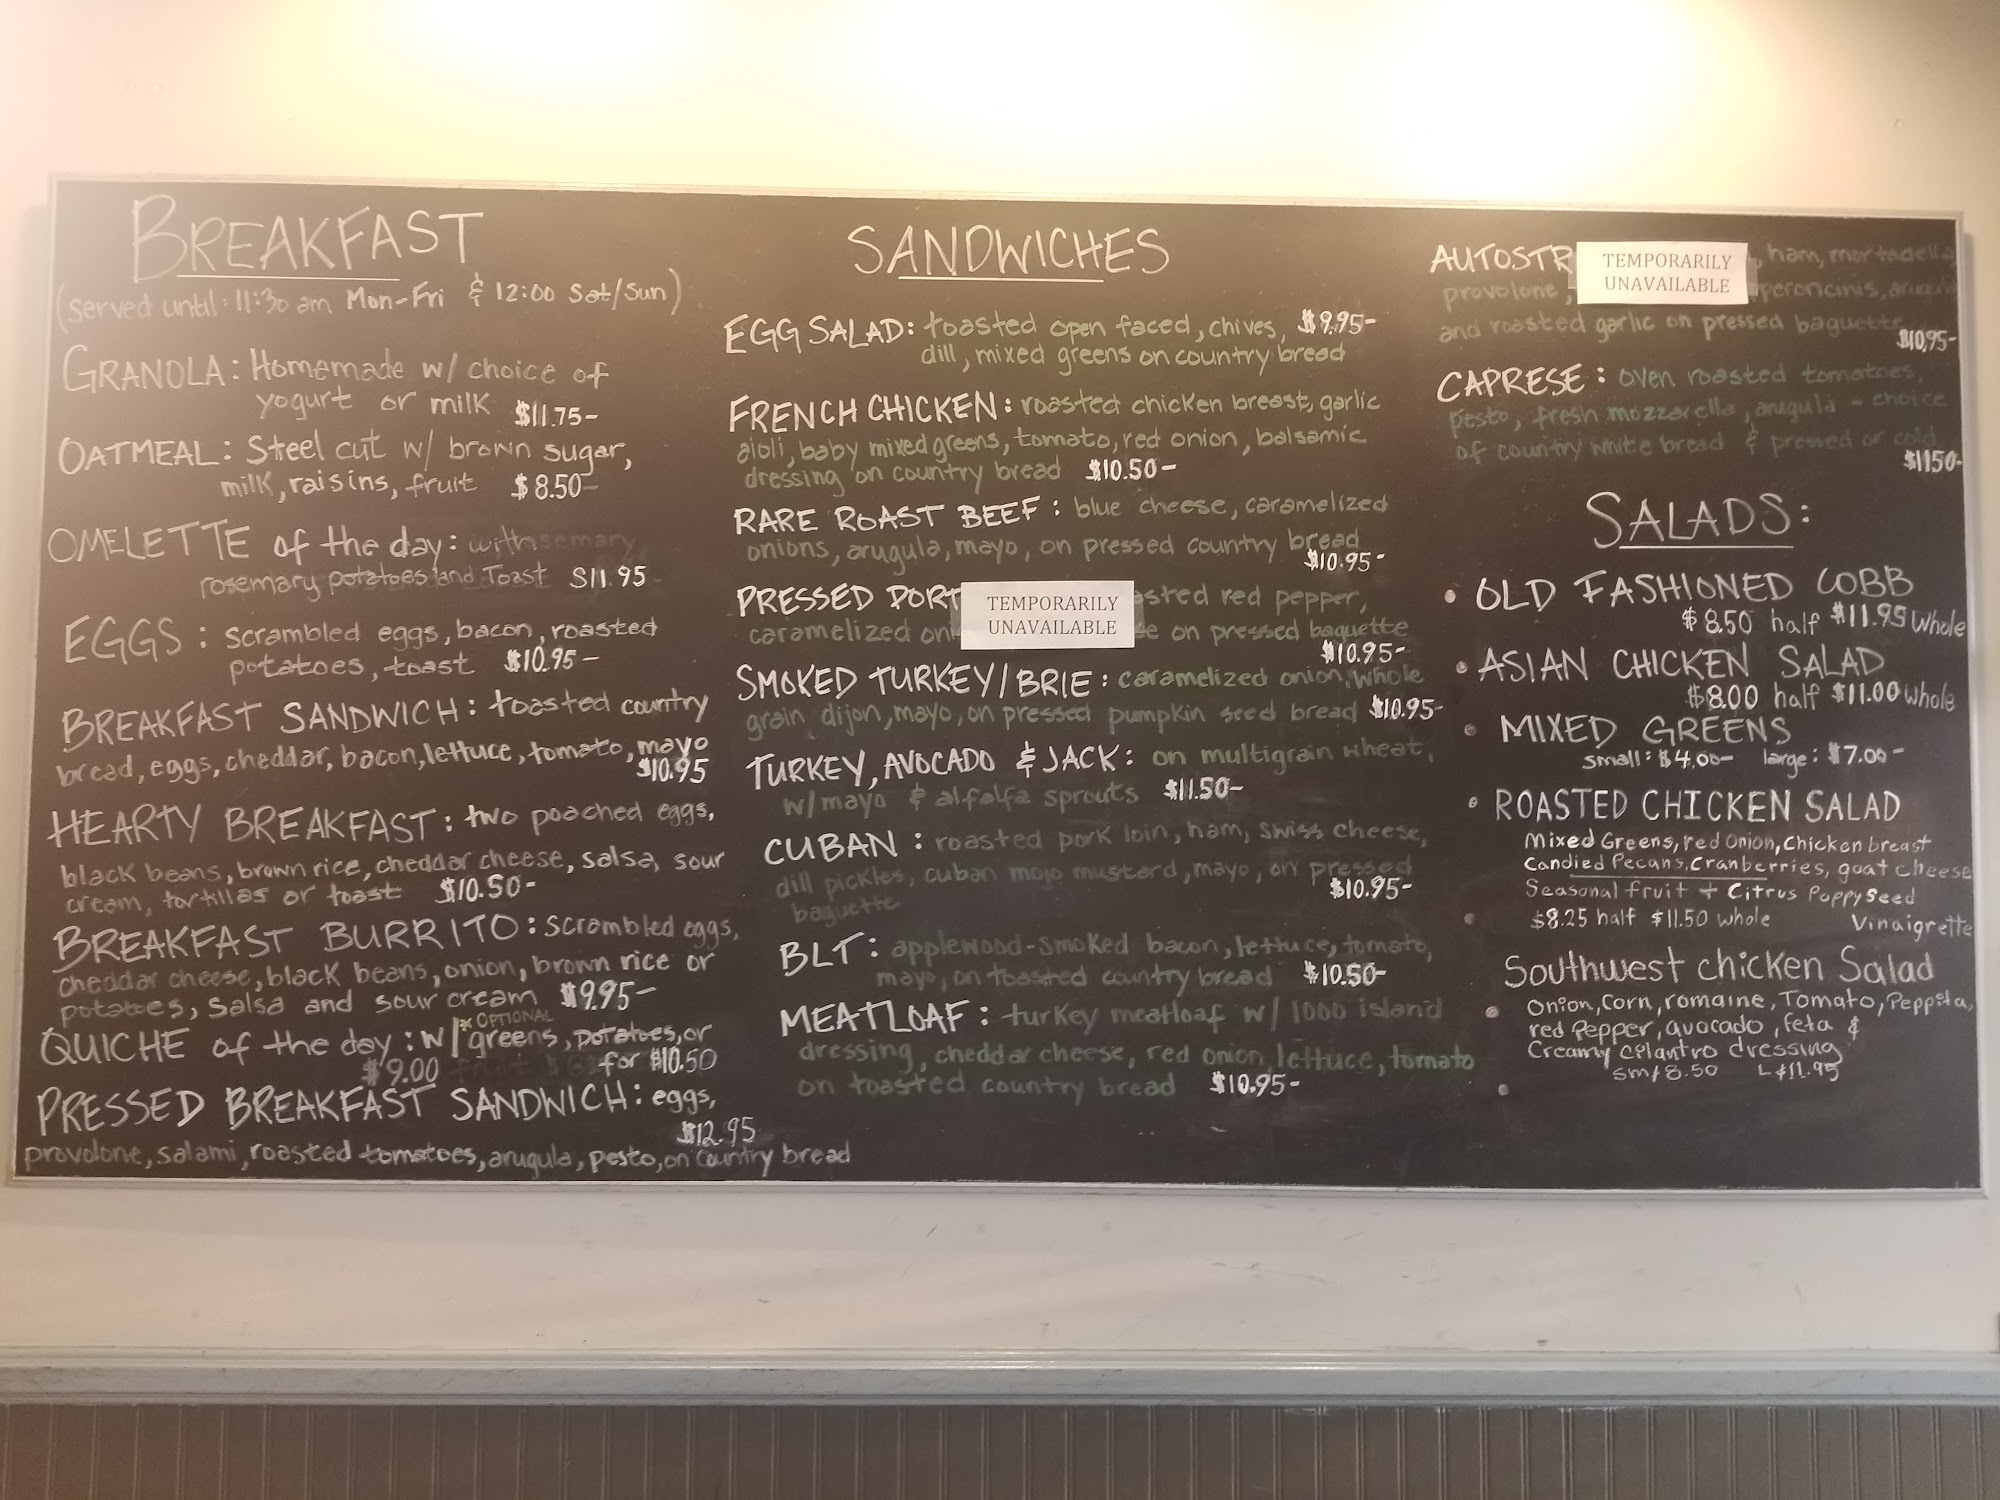 BREAKFAST
(served until: 11:30 am Mon-Fri & 12:00 Sat/Sun)
GRANOLA: Homemade w/ choice of
yogurt or milk $11.75-
OATMEAL: Steel cut w/ brown sugar,
milk, raisins, fruit $8.50
OMELETTE of the day: with
rosemary potatoes and Toast $11.95
EGGS: scrambled eggs, bacon, roasted
potatoes, toast $10.95-
BREAKFAST SANDWICH: toasted country
bread, eggs, cheddar, bacon, lettuce, tomato, mayo
$10.95
HEARTY BREAKFAST: two poached eggs,
black beans, brown rice, cheddar cheese, salsa, sour
cream, tortillas or toast $10.50-
BREAKFAST BURRITO: scrambled eggs,
cheddar cheese, black beans, onion, brown rice or
potatoes, salsa and sour cream $9.95-
* OPTIONAL
QUICHE of the day: w/ greens, potatoes, or
$9.00 fruit for $10.50
PRESSED BREAKFAST SANDWICH: eggs,
$12.95
provolone, salami, roasted tomatoes, arugula, pesto, on country bread
SANDWICHES
EGG SALAD: toasted open faced, chives, $9.95-
dill, mixed greens on country bread
FRENCH CHICKEN: roasted chicken breast, garlic
aioli, baby mixed greens, tomato, red onion, balsamic
dressing on country bread $10.50-
RARE ROAST BEEF: blue cheese, caramelized
onions, arugula, mayo, on pressed country bread
$10.95-
PRESSED PORT TEMPORARILY sted red pepper,
caramelized oni UNAVAILABLE e on pressed baguette
$10.95-
SMOKED TURKEY/BRIE: caramelized onion, whole
grain dijon, mayo, on pressed pumpkin seed bread $10.95-
TURKEY, AVOCADO & JACK: on multigrain wheat,
w/ mayo & alfalfa sprouts $11.50-
CUBAN: roasted pork loin, ham, swiss cheese,
dill pickles, cuban mojo mustard, mayo, on pressed
baguette $10.95-
BLT: applewood-smoked bacon, lettuce, tomato,
mayo, on toasted country bread $10.50-
MEATLOAF: turkey meatloaf w/ 1000 island
dressing, cheddar cheese, red onion, lettuce, tomato
on toasted country bread $10.95-
AUTOSTR TEMPORARILY , ham, mortadella,
provolone, UNAVAILABLE peroncinis, arugula
and roasted garlic on pressed baguette
$10.95-
CAPRESE: oven roasted tomatoes,
pesto, fresh mozzarella, arugula - choice
of country white bread & pressed or cold
$1150-
SALADS:
• OLD FASHIONED COBB
$8.50 half $11.95 whole
• ASIAN CHICKEN SALAD
$8.00 half $11.00 whole
• MIXED GREENS
small: $4.00- large: $7.00-
• ROASTED CHICKEN SALAD
Mixed Greens, red Onion, Chicken breast
Candied Pecans, Cranberries, goat cheese
Seasonal fruit + Citrus Poppy Seed
$8.25 half $11.50 whole Vinaigrette
Southwest chicken Salad
Onion, Corn, romaine, Tomato, Peppita,
red Pepper, avocado, feta &
Creamy Cilantro dressing
sm $8.50 L $11.95